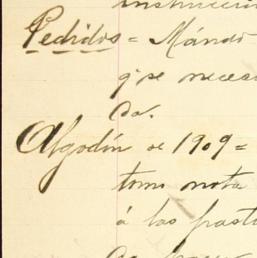 instrucció
Pedidos = Mándo
q. se neces
da.
Algodón de 1909 =
tomo nota
á las frast